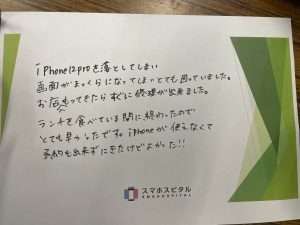 iPhone12proを落としてしまい
画面がまっくらになってしまいとても困っていました。
お店へもってきたらすぐに修理が出来ました。
ランチを食べている間に終わったので
とても早かったです。iPhoneが使えなくて
予約も出来ずにきたけどよかった!!
スマホスピタル
SMAHOSPITAL